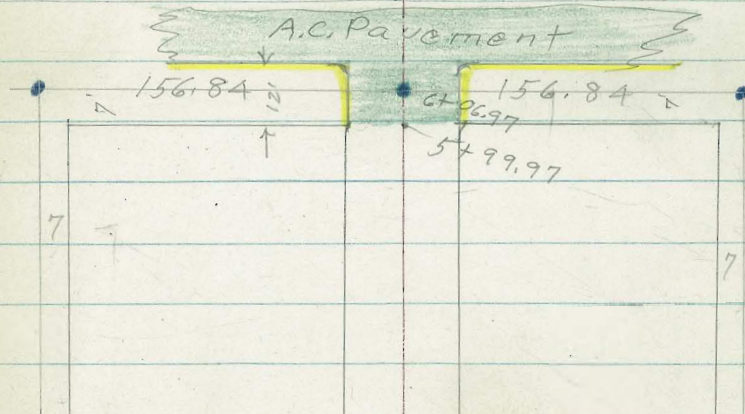 A.C. Pavement
156.84
12'
6+06.97
156.84
7'
7
5+99.97
7
7